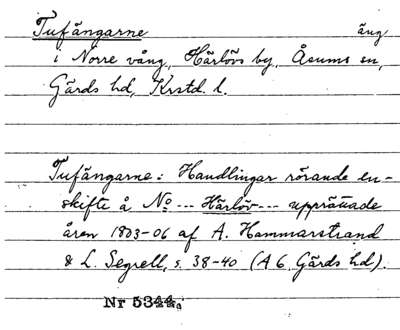 Tufängarne äng
i Norre vång, Härlövs by, Åsums sn,
Gärds hd, Krstd. l.
Tufängarne: Handlingar rörande en-
skifte å No --- Härlöv --- upprättade
åren 1803-06 af A. Hammarstrand
& L. Segrell, s. 38-40 (A 6, Gärds hd).
Nr 5344.